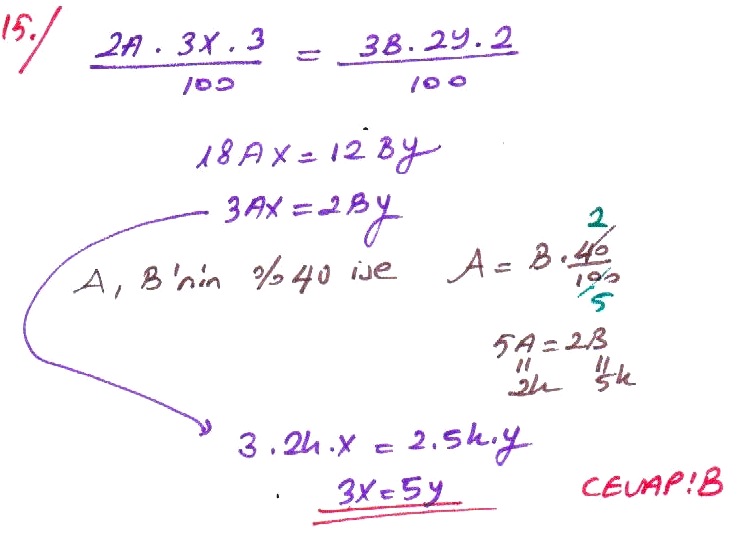 15./
2A . 3X . 3 / 100 = 3B . 2y . 2 / 100
18AX = 12By
3AX = 2By
A, B'nin %40 ise A = B . 40/100 2 5
5A = 2B
= 2k = 5k
3 . 2k . X = 2 . 5k . y
3X = 5y
CEVAP: B